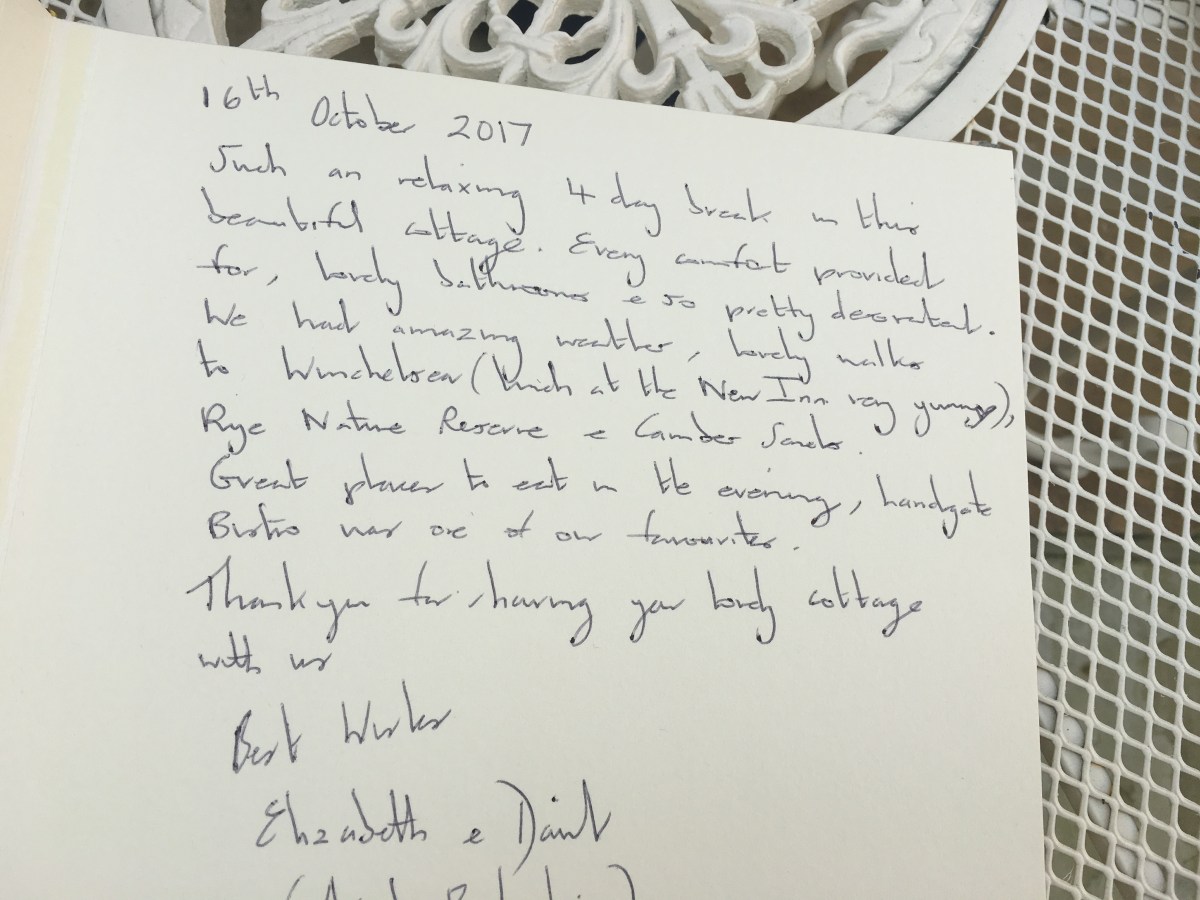 16th October 2017
Such an relaxing 4 day break in this
beautiful cottage. Every comfort provided
for, lovely bathrooms e so pretty decorated.
We had amazing weather, lovely walks
to Winchelsea (lunch at the New Inn very yummy),
Rye Nature Reserve e Camber Sands.
Great places to eat in the evening, handgate
Bistro was one of our favourites.
Thank you for sharing your lovely cottage
with us
Best Wishes
Elizabeth e